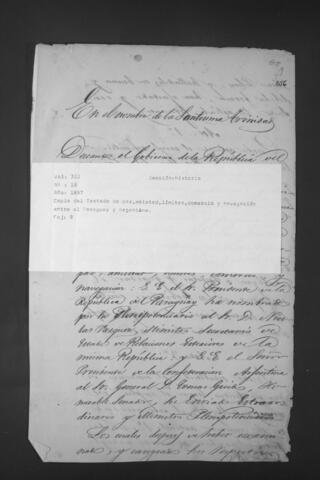 156
En el nombre de la Santisima Trinidad
Deseando el Gobierno de la República del
Vol: 322 Sección:Historia
Nº : 18
Año: 1857
Copia del Tratado de paz,amistad,límites,comercio y navegación
entre el Paraguay y Argentina.
Foj: 8
paz, amistad y
navegacion: S. E. el Sr. Presidente de la
República del Paraguay ha nombrado
por su Plenipotenciario al Sr. D. Nico
las Vasquez, Ministro Secretario de
Estado de Relaciones Exteriores de la
misma República, y S. E. el Señor
Presidente de la Confederacion Argentina
al Sr. General D. Tomas Guido, Ho-
norable Senador, su Enviado Extraor
dinario y Ministro Plenipotenciario
Los cuales despues de haber exami
nado, y cangeado sus respectivos